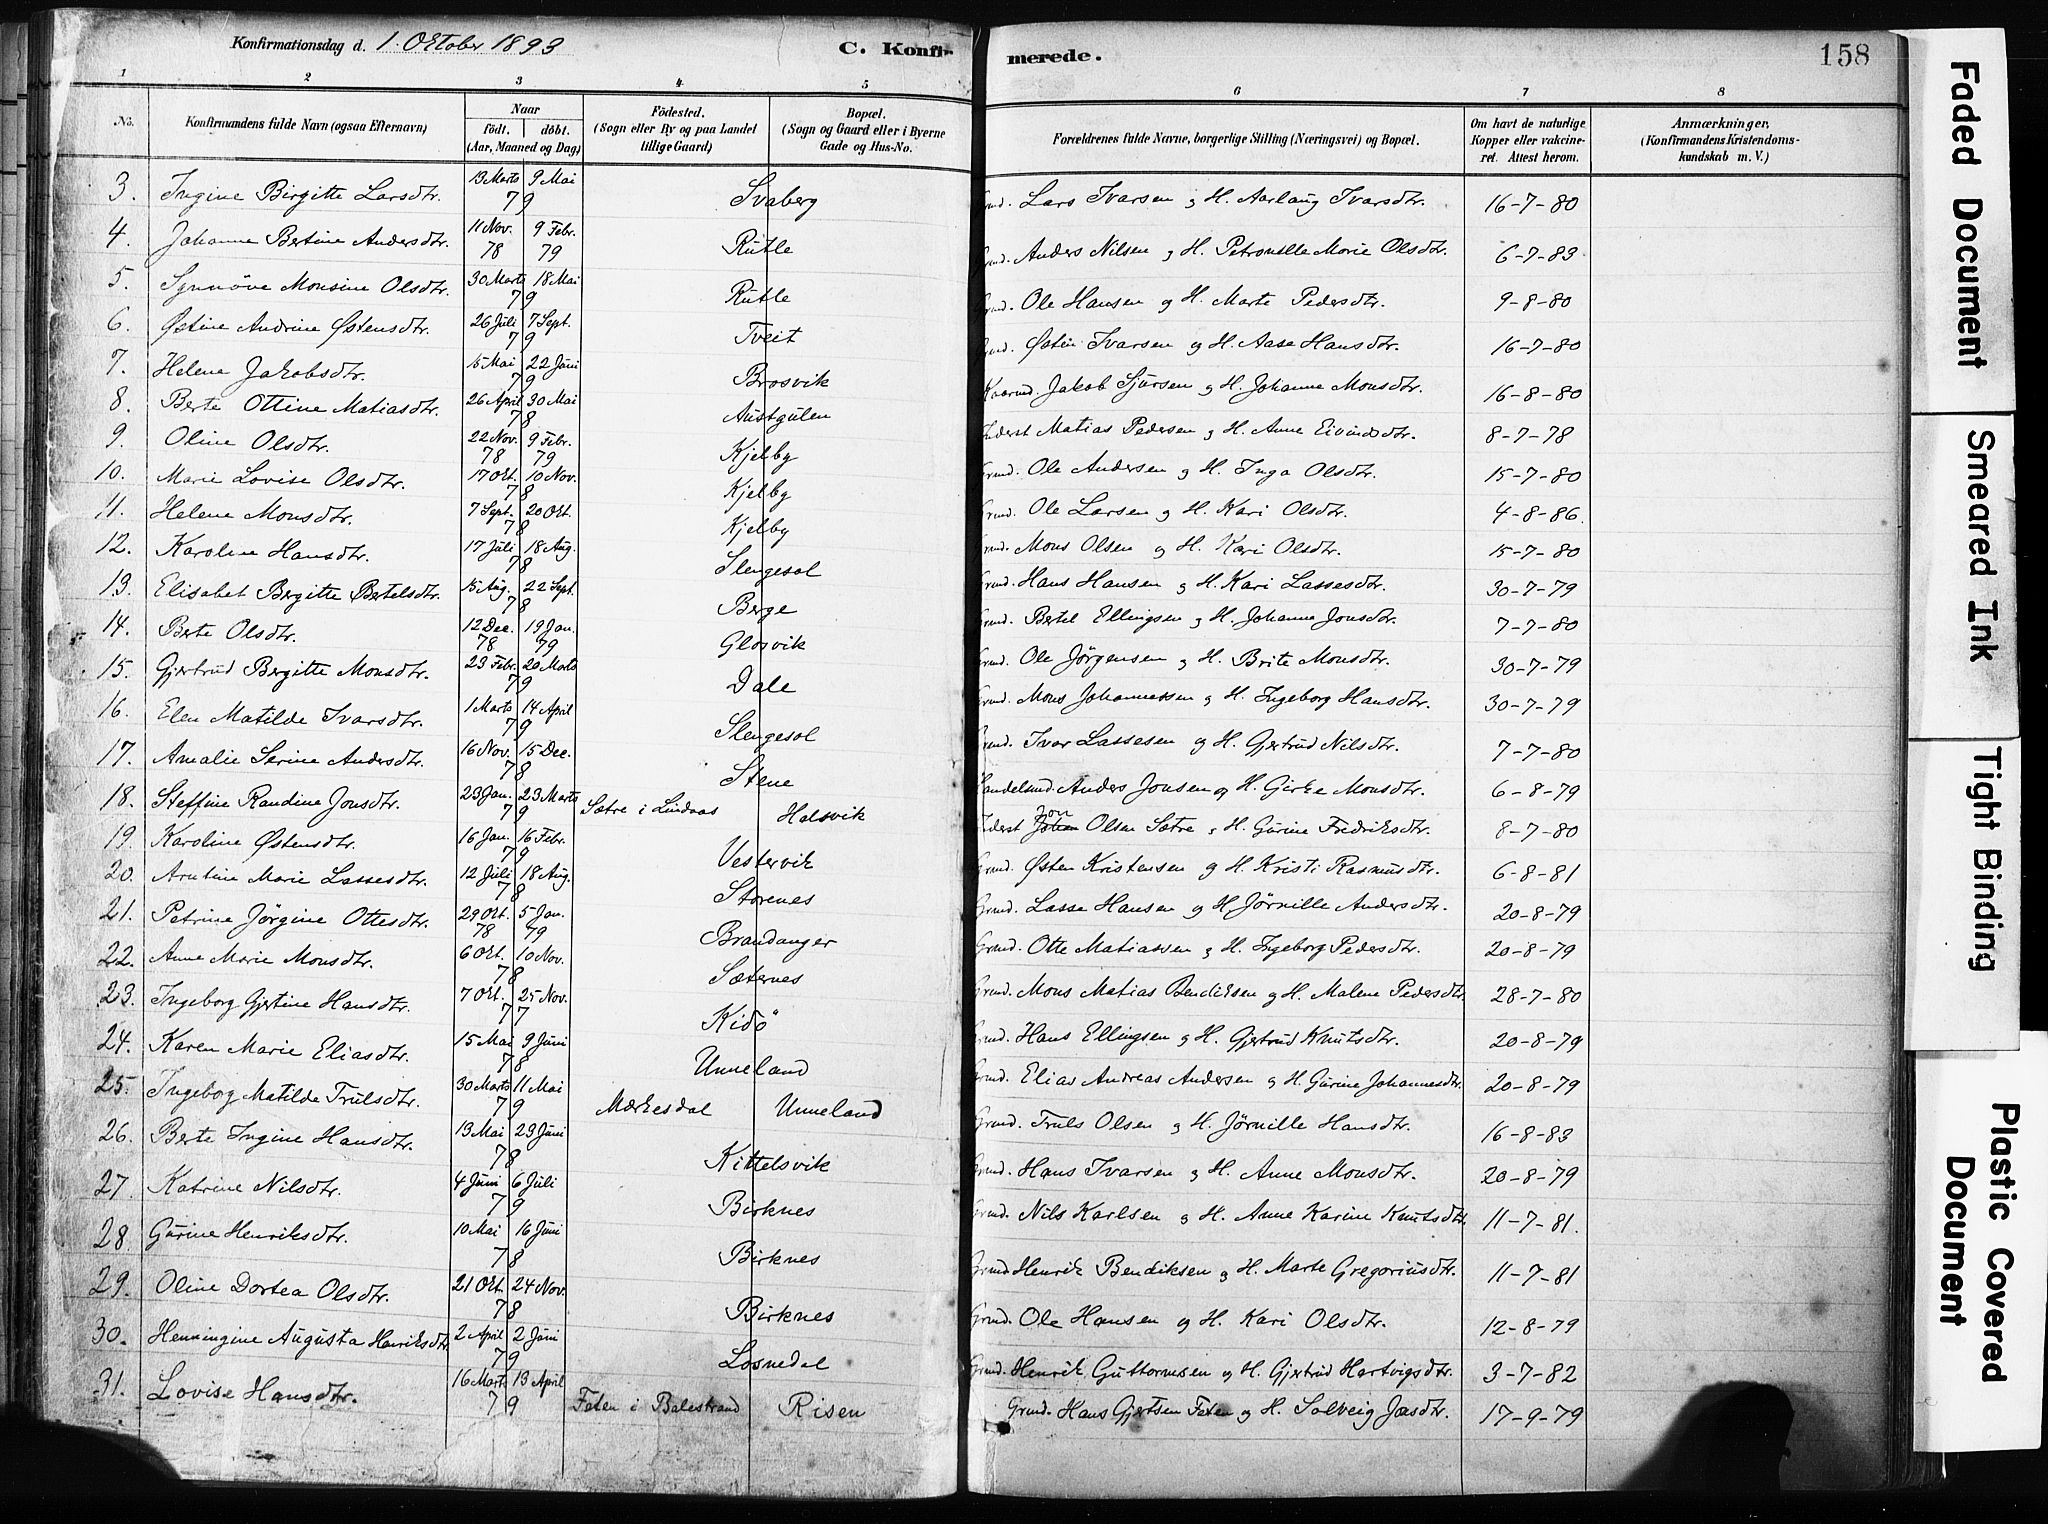 Konfirmationsdag d. 1. October 1893 C. Konfirmerede. 158
1 2 3 4 5 6 7 8
No. Konfirmandens fulde Navn (ogsaa Efternavn) Naar født. døbt. (Aar, Maaned og Dag) Fødested. (Sogn eller By og paa Landet tillige Gaard) Bopæl. (Sogn og Gaard eller i Byerne Gade og Hus-No. Forældrenes fulde Navne, borgerlige Stilling (Næringsvei) og Bopæl. Om havt de naturlige Kopper eller vakcineret. Attest herom. Anmærkninger, (Konfirmandens Kristendomskundskab m. V.)
3. Ingine Birgitte Larsdtr. 13 Marts 9 Mai 79 Svaberg Grmd. Lars Ivarsen og H. Aarlaug Ivarsdtr. 16-7-80
4. Johanne Bertine Andersdtr. 11 Nov. 78 9 Febr. 79 Rutle Grmd. Anders Nilsen og H. Petronelle Marie Olsdtr. 6-7-83
5. Synnöve Monsine Olsdtr. 30 Marts 18 Mai 79 Rutle Grmd. Ole Hansen og H. Marte Pedersdtr. 9-8-80
6. Østine Andrine Østensdtr. 26 Juli 7 Sept. 79 Tveit Grmd. Østen Ivarsen og H. Aase Hansdtr. 16-7-80
7. Helene Jakobsdtr. 15 Mai 22 Juni 79 Brosvik Kaarmd. Jakob Sjursen og H. Johanne Monsdtr. 16-8-80
8. Berte Ottine Matiasdtr. 26 April 30 Mai 78 Austgulen Inderst Matias Pedersen og H. Anne Eivindsdtr. 8-7-78
9. Oline Olsdtr. 22 Nov. 78 9 Febr. 79 Kjelby Grmd. Ole Andersen og H. Inga Olsdtr. 15-7-80
10. Marie Lovise Olsdtr. 17 Okt. 10 Nov. 78 Kjelby Grmd. Ole Larsen og H. Kari Olsdtr. 4-8-86.
11. Helene Monsdtr. 7 Sept. 20 Okt. 78 Kjelby Grmd. Mons Olsen og H. Kari Olsdtr. 15-7-80
12. Karoline Hansdtr. 17 Juli 18 Aug. 78 Slengesol Grmd. Hans Hansen og H. Kari Lassesdtr. 30-7-79
13. Elisabet Bergitte Bertelsdtr. 15 Aug. 22 Sept. 78 Berge Grmd. Bertel Ellingsen og H. Johanne Jonsdtr. 7-7-80
14. Berte Olsdtr. 12 Dec. 78 19 Jan. 79 Glosvik Grmd. Ole Jørgensen og H. Brite Monsdtr. 30-7-79
15. Gjertrud Bergitte Monsdtr. 23 Febr. 20 Marts 79 Dale Grmd. Mons Johannessen og H. Ingeborg Hansdtr. 30-7-79
16. Elen Matilde Ivarsdtr. 1 Marts 14 April 79 Slengesol Grmd. Ivar Lassesen og H. Gjertrud Nilsdtr. 7-7-80
17. Amalie Serine Andersdtr. 16 Nov. 15 Dec. 78 Stene Handelsmd. Anders Jonsen og H. Girke Monsdtr. 6-8-79
18. Steffine Randine Jonsdtr. 23 Jan. 23 Marts 79 Sætre i Lindaas Halsvik Inderst Jon Olsen Sætre og H. Gurine Fredriksdtr. 8-7-80
19. Karoline Østensdtr. 16 Jan. 16 Febr. 79 Vestervik Grmd. Østen Kristensen og H. Kristi Rasmusdtr. 6-8-81
20. Arntine Marie Lassesdtr. 12 Juli 18 Aug. 78 Storenes Grmd. Lasse Hansen og H. Jørnille Andersdtr. 20-8-79
21. Petrine Jørgine Ottesdtr. 29 Okt. 78 5 Jan. 79 Brandanger Grmd. Otte Matiassen og H. Ingeborg Pedersdtr. 20-8-79
22. Anne Marie Monsdtr. 6 Okt. 10 Nov. 78 Sæternes Grmd. Mons Matias Bendiksen og H. Malene Pedersdtr. 28-7-80
23. Ingeborg Gjertine Hansdtr. 7 Okt. 25 Nov. 77 Kidö Grmd. Hans Ellingsen og H. Gjertrud Knutsdtr. 20-8-79
24. Karen Marie Eliasdtr. 15 Mai 9 Juni 78 Unneland Grmd. Elias Andreas Andersen og H. Gurine Johannesdtr. 20-8-79
25. Ingeborg Matilde Trulsdtr. 30 Marts 11 Mai 79 Mærkesdal Unneland Grmd. Truls Olsen og H. Jørnille Hansdtr. 16-8-83
26. Berte Ingine Hansdtr. 13 Mai 23 Juni 78 Kittelsvik Grmd. Hans Ivarsen og H. Anne Monsdtr. 20-8-79
27. Katrine Nilsdtr. 4 Juni 6 Juli 79 Birknes Grmd. Nils Karlsen og H. Anne Karine Knutsdtr. 11-7-81.
28. Gurine Henriksdtr. 10 Mai 16 Juni 78 Birknes Grmd Henrik Bendiksen og H. Marte Gregoriusdtr. 11-7-81
29. Oline Dortea Olsdtr. 21 Okt. 24 Nov. 78 Birknes Grmd. Ole Hansen og H. Kari Olsdtr. 12-8-79
30. Henningine Augusta Henriksdtr 2 April 2 Juni 79 Losnedal Grmd. Henrik Guttormsen og H. Gjertrud Hartvigsdtr. 3-7-82
31. Lovise Hansdtr. 16 Marts 13 April 79 Feten i Balestrand Risen Grmd. Hans Gjertsen Feten og H. Solveig Jonsdtr. 17-9-79
Faded Document
Smeared Ink
Tight Binding
Plastic Covered Document